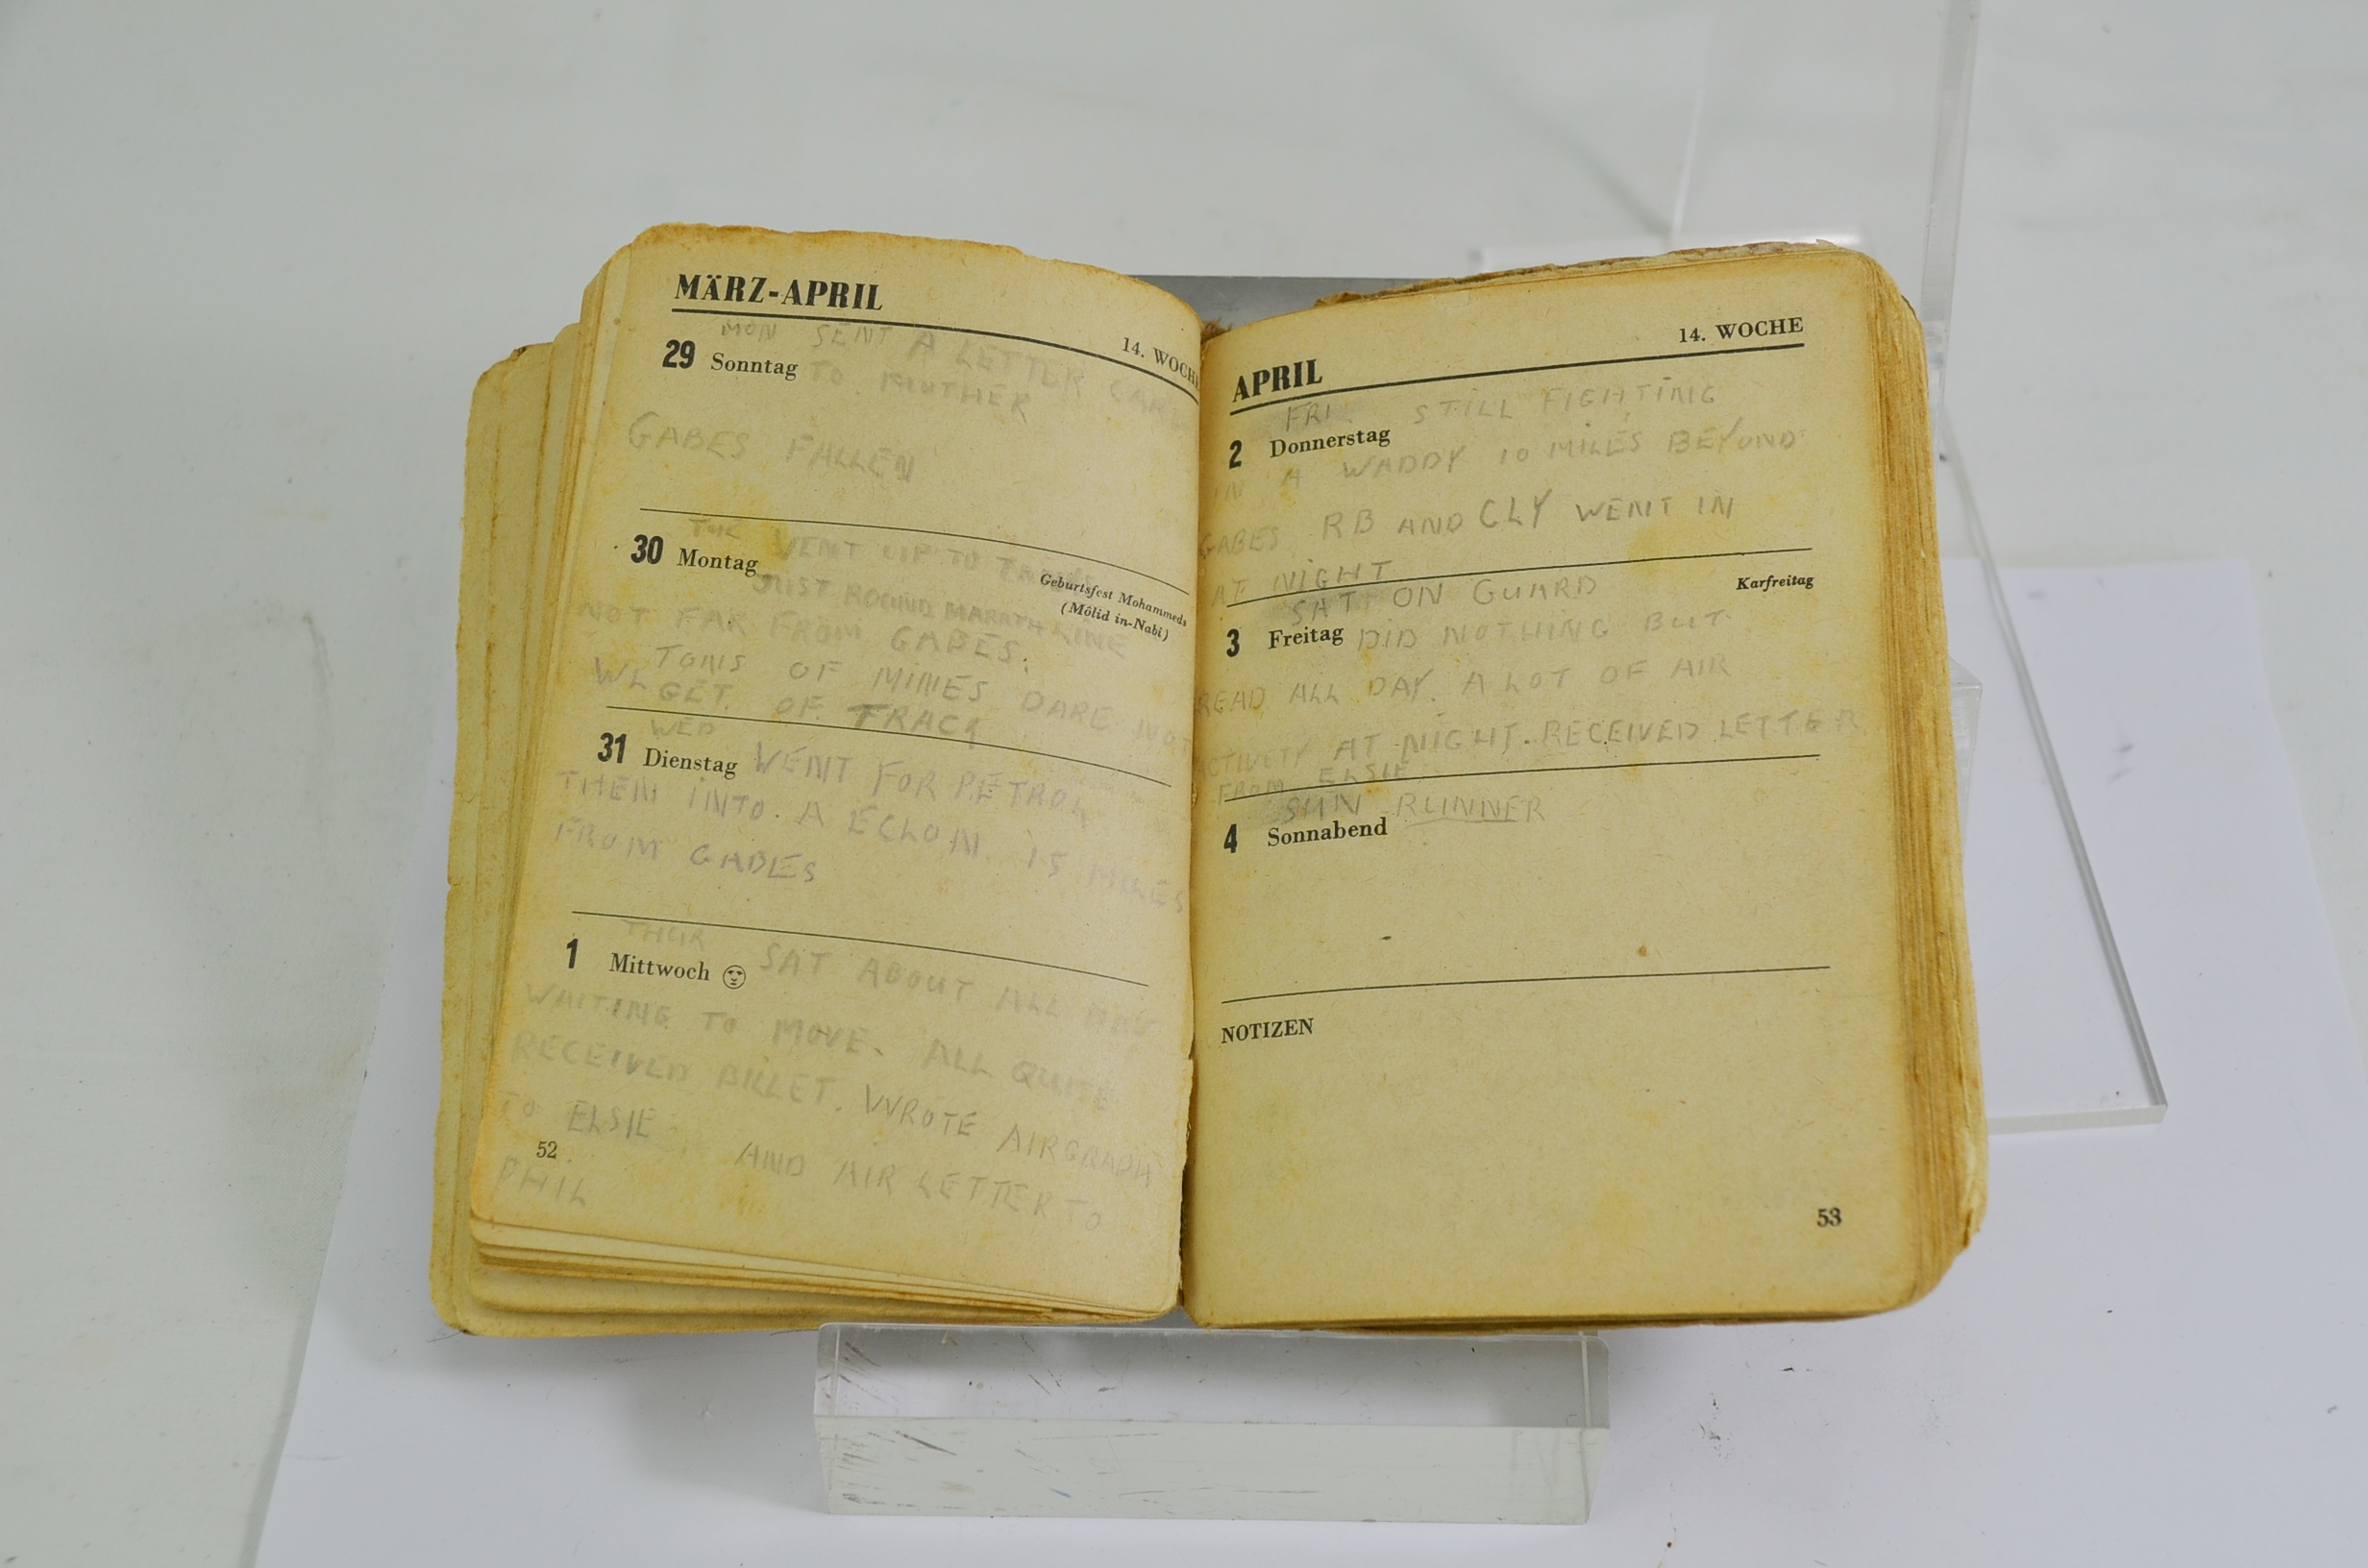 MÄRZ-APRIL
14. WOCHE
MON SENT A LETTER CARD
29 Sonntag TO MOTHER
GABES FALLEN
TUE WENT UP TO
30 Montag JUST ROUND MARATH LINE
Geburtsfest Mohammeds
(Môlid in-Nabi)
NOT FAR FROM GABES.
TONS OF MINES DARE NOT
WE GET OF TRACK
WED
31 Dienstag WENT FOR PETROL
THEN INTO A ECLON. 15 MILES
FROM GABES
THUR
1 Mittwoch SAT ABOUT ALL DAY
WAITING TO MOVE. ALL QUITE
RECEIVED BILLET. WROTE AIRGRAPH
TO ELSIE AND AIR LETTER TO
52
PHIL
14. WOCHE
APRIL
FRI STILL FIGHTING
2 Donnerstag
IN A WADDY 10 MILES BEYOND
GABES RB AND CLY WENT IN
AT NIGHT
SAT ON GUARD
Karfreitag
3 Freitag DID NOTHING BUT
READ ALL DAY. A LOT OF AIR
ACTIVITY AT NIGHT. RECEIVED LETTER
FROM ELSIE
SUN RUNNER
4 Sonnabend
NOTIZEN
53